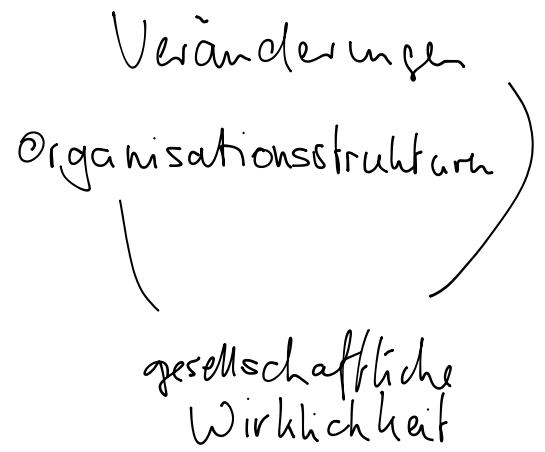 Veränderungen
Organisationsstrukturen
gesellschaftliche
Wirklichkeit